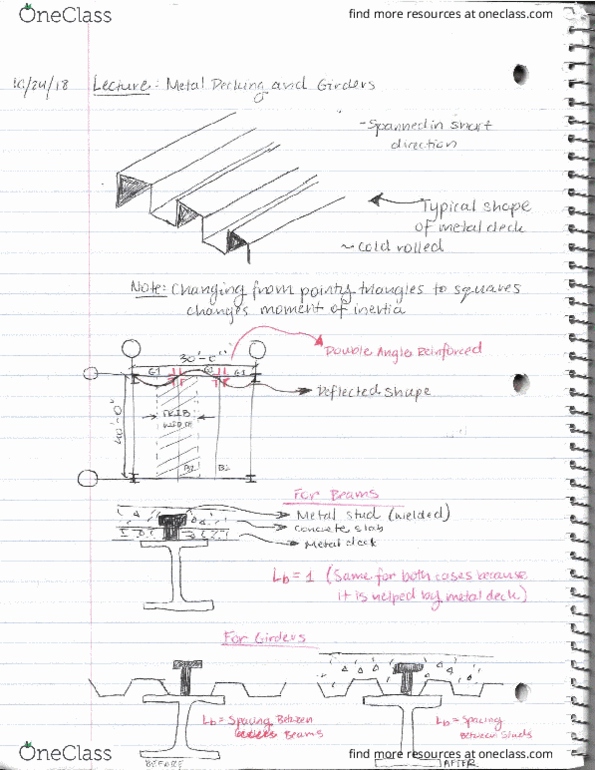 OneClass
find more resources at oneclass.com
10/24/18 Lecture: Metal Decking and Girders
- Spanned in short
direction
Typical shape
of metal deck
~ cold rolled
Note: Changing from pointy triangles to squares
changes moment of inertia
30'-0"
Double Angle Reinforced
G1 G2 G1
Deflected Shape
40'-0"
TRIB
WIDTH
B2 B2
For Beams
Metal stud (welded)
concrete slab
Metal deck
Lb = 1 (Same for both cases because
it is helped by metal deck.)
For Girders
Lb = Spacing Between
Beams
Lb = Spacing
Between Studs
BEFORE
AFTER
OneClass
find more resources at oneclass.com